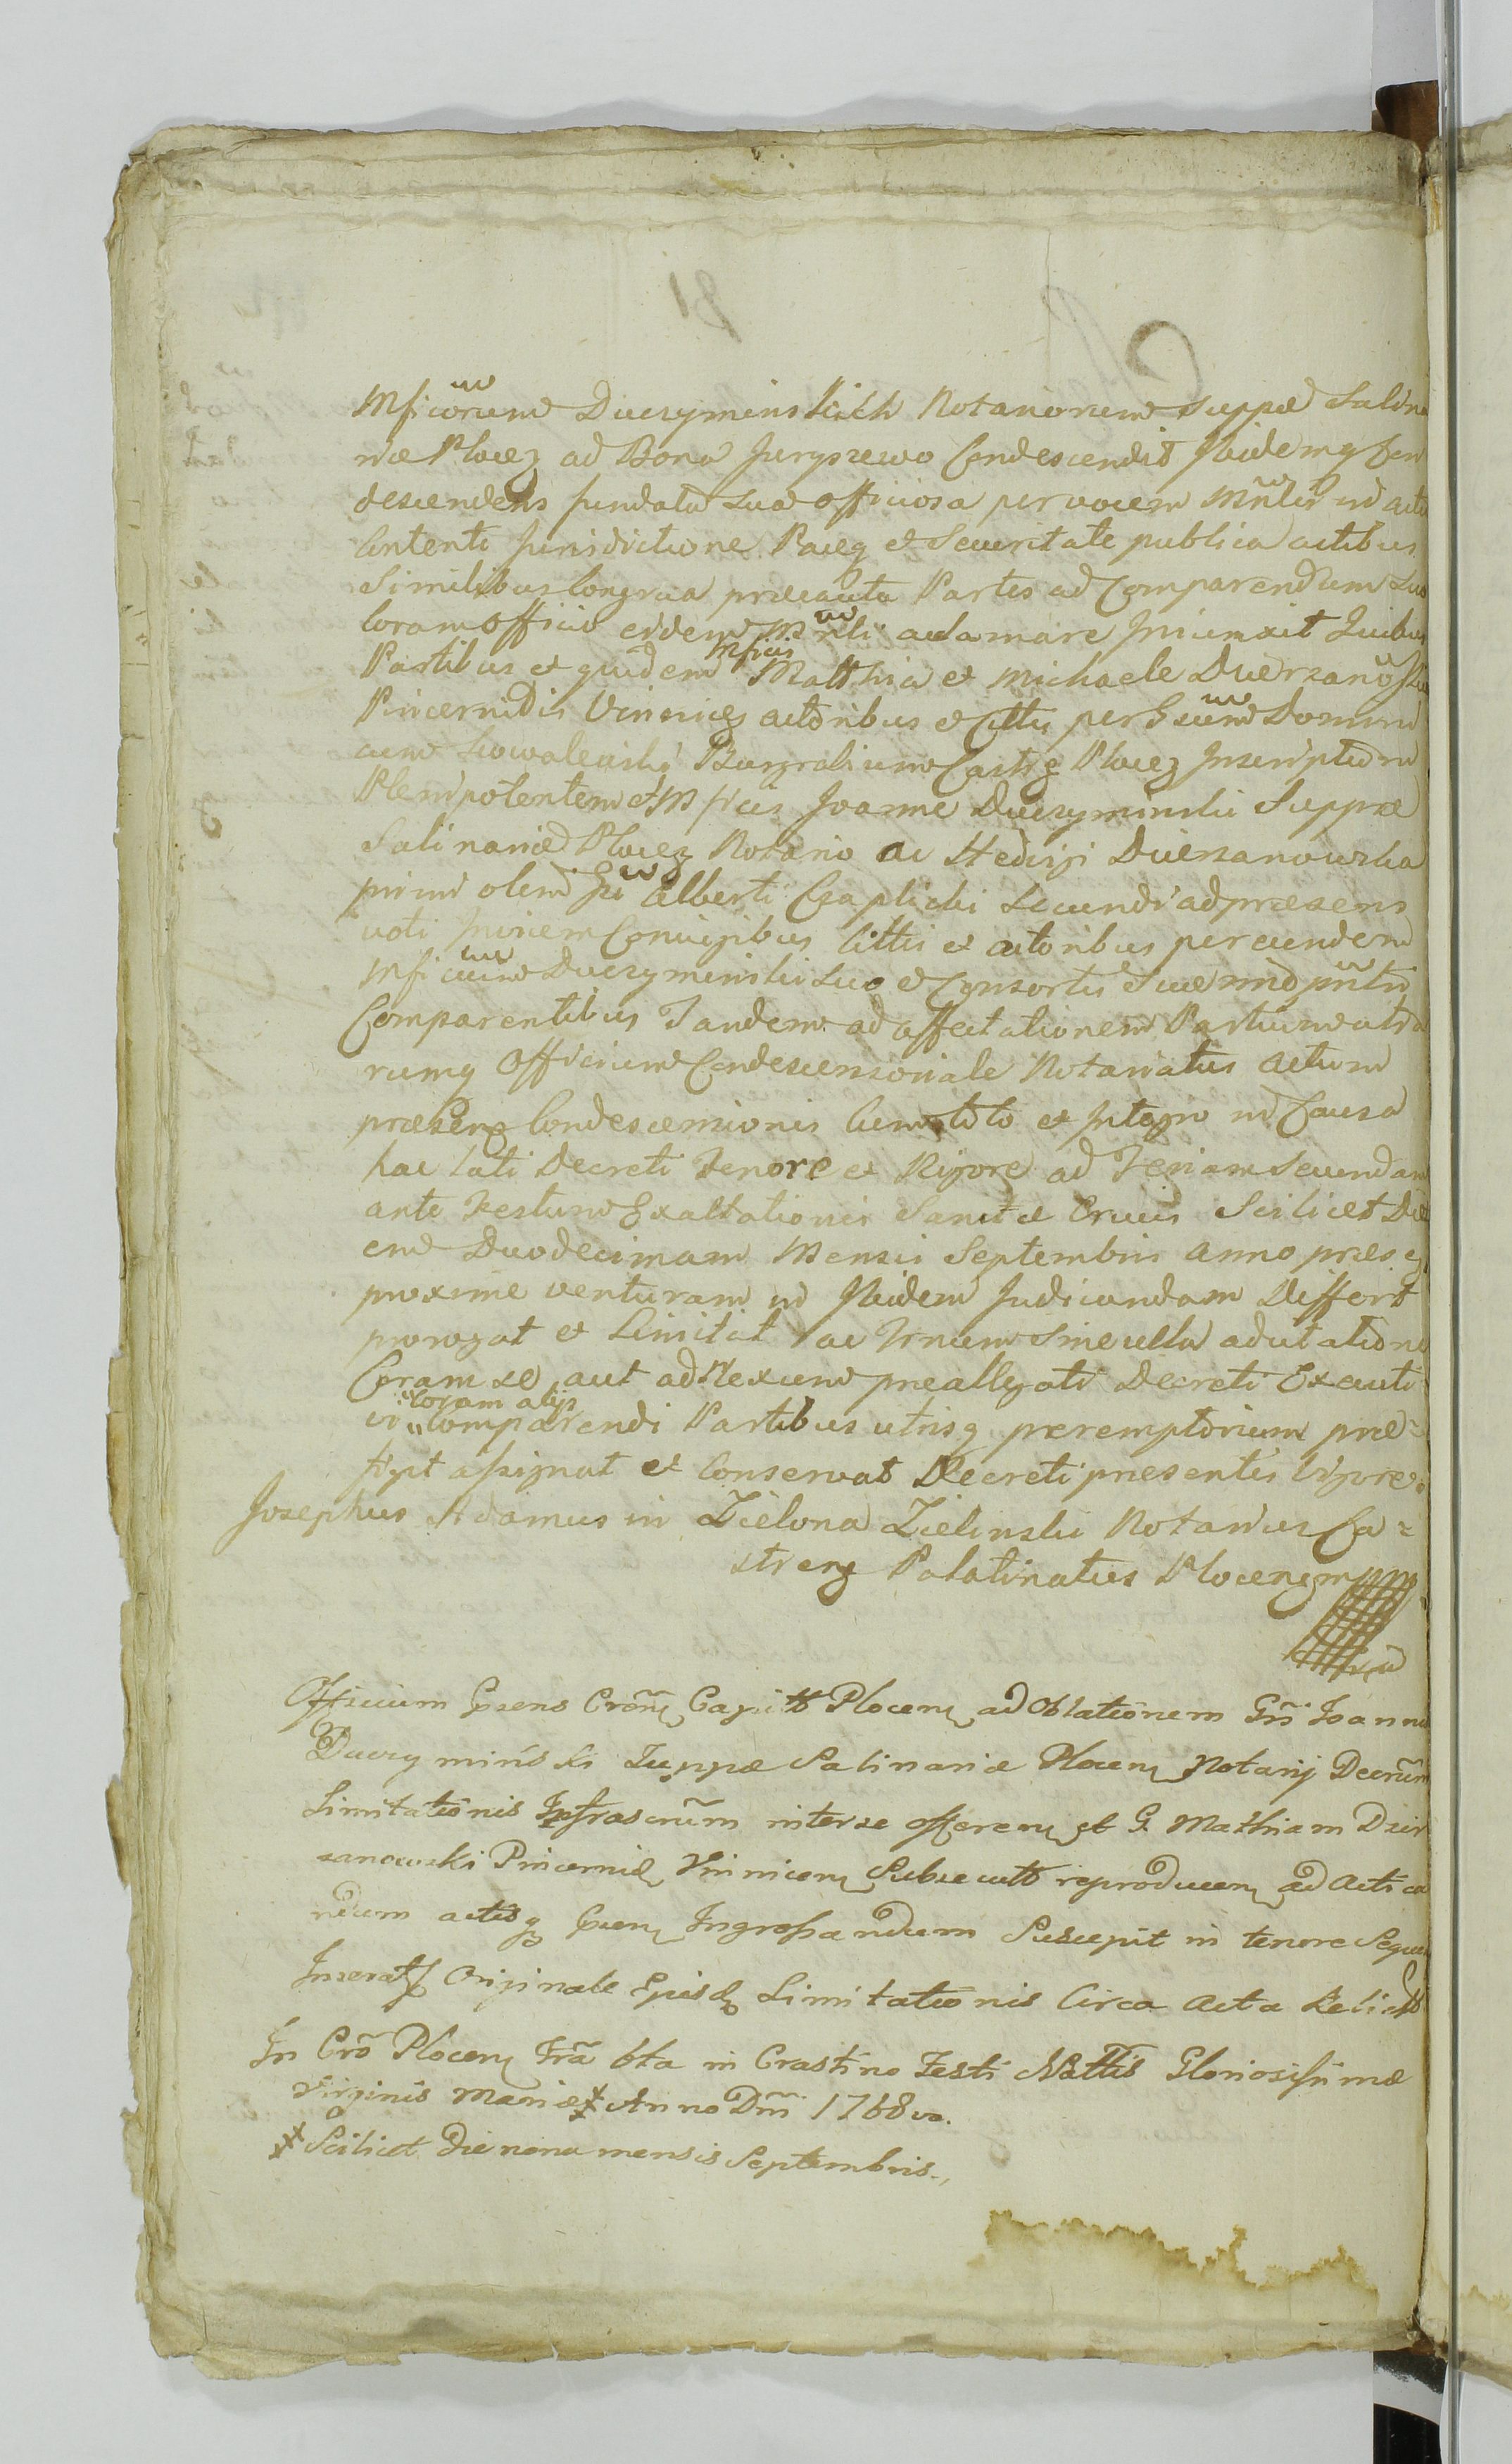 Mficorum Duczyminskich Notariorum Suppæ Salina
riæ Plocz ad Bona Juryszewo Condescendit Ibidemq Con
descendens fundata sua officiosa per vocem Mnlis in actu
Contenti Jurisdictione Paceq et Securitate publica actibus
Similibus Congrua præcauta Partes ad Comparendum sui
Coram officio eidem Mnli aclamare Iniunxit Quibus
Partibus et quidem Mficis Matthia et Michaele Dzierzanowski
Pincernidis Vinnicz actoribus et Cittis per Gsum Dominu
cum Kowalewski Burgrabium Castrz Plocz Inscriptum
Plenipotentem et Mficis Joanne Duczyminski Suppæ
Salinariæ Plocz Notario ac Hedvigi Dzierzanowska
primi olim Gsi Alberti Czaplicki Secundi ad præsens
voti Invicem Conjugibus Cittis et actoribus per eundem
Mficum Duczyminski suo et Consortis Suæ nnõ pnlir
Comparentibus Tandem ad affectationem Partium utra
rumq Officium Condescensoriale Notariatus actum
præsenz Condescensionis Cum toto et Integro in Causa
hac lati Decreti Tenore et Rigore ad Feriam Secundam
ante Festum Exaltationis Sanctæ Crucis Scilicet Di
em Duodecimam Mensis Septembris Anno præsez
proxime venturam in Ibidem Judicandam Differt
prorogat et Limitat ac Trnum Sine ulla adcitatione
Coram se aut ad Nexum preallegati Decreti Executi
vi "Coram alijs" Comparendi Partibus utrisq peremptorium præ=
figit assignat et Conservat Decreti presentis Vigore.
Josephus Adamus in Zielona Zielinski Notarius Ca=
strenz Palatinatus Plocenz mpp

Officium Gsens Crõn Capittl Plocen ad Oblationem Gñi Joannis
Duczyminski Zuppæ Salinariæ Plocen Notarij Decrũm
Limitationis Infrascrũm inter se offeren et G. Mathiam Dzier
zanowski Pincernid Vinnicen Subsecutt reproducen ad Actica
ndum actisq Gsen Ingrossandum Suscepit in tenore Seque
Inserat Originale Ejusd Limitationis Circa Acta Relictt
In Crõ Plocen Frã 6ta in Crastino Festi Nattis Gloriosissimæ
Virginis Mariæ ⁜ Anno Dñi 1768vo.
⁜ Scilicet Die nona mensis Septembris.,